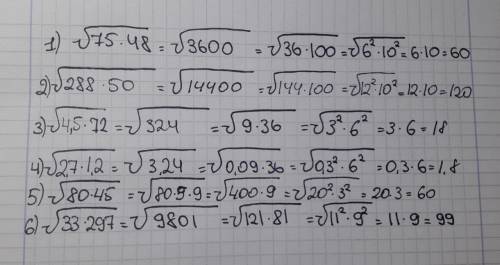 1) √75·48 = √3600 = √36·100 = √6²·10² = 6·10 = 60
2) √288·50 = √14400 = √144·100 = √12²·10² = 12·10 = 120
3) √4,5·72 = √324 = √9·36 = √3²·6² = 3·6 = 18
4) √2,7·1,2 = √3,24 = √0,09·36 = √0,3²·6² = 0,3·6 = 1,8
5) √80·45 = √80·5·9 = √400·9 = √20²·3² = 20·3 = 60
6) √33·297 = √9801 = √121·81 = √11²·9² = 11·9 = 99